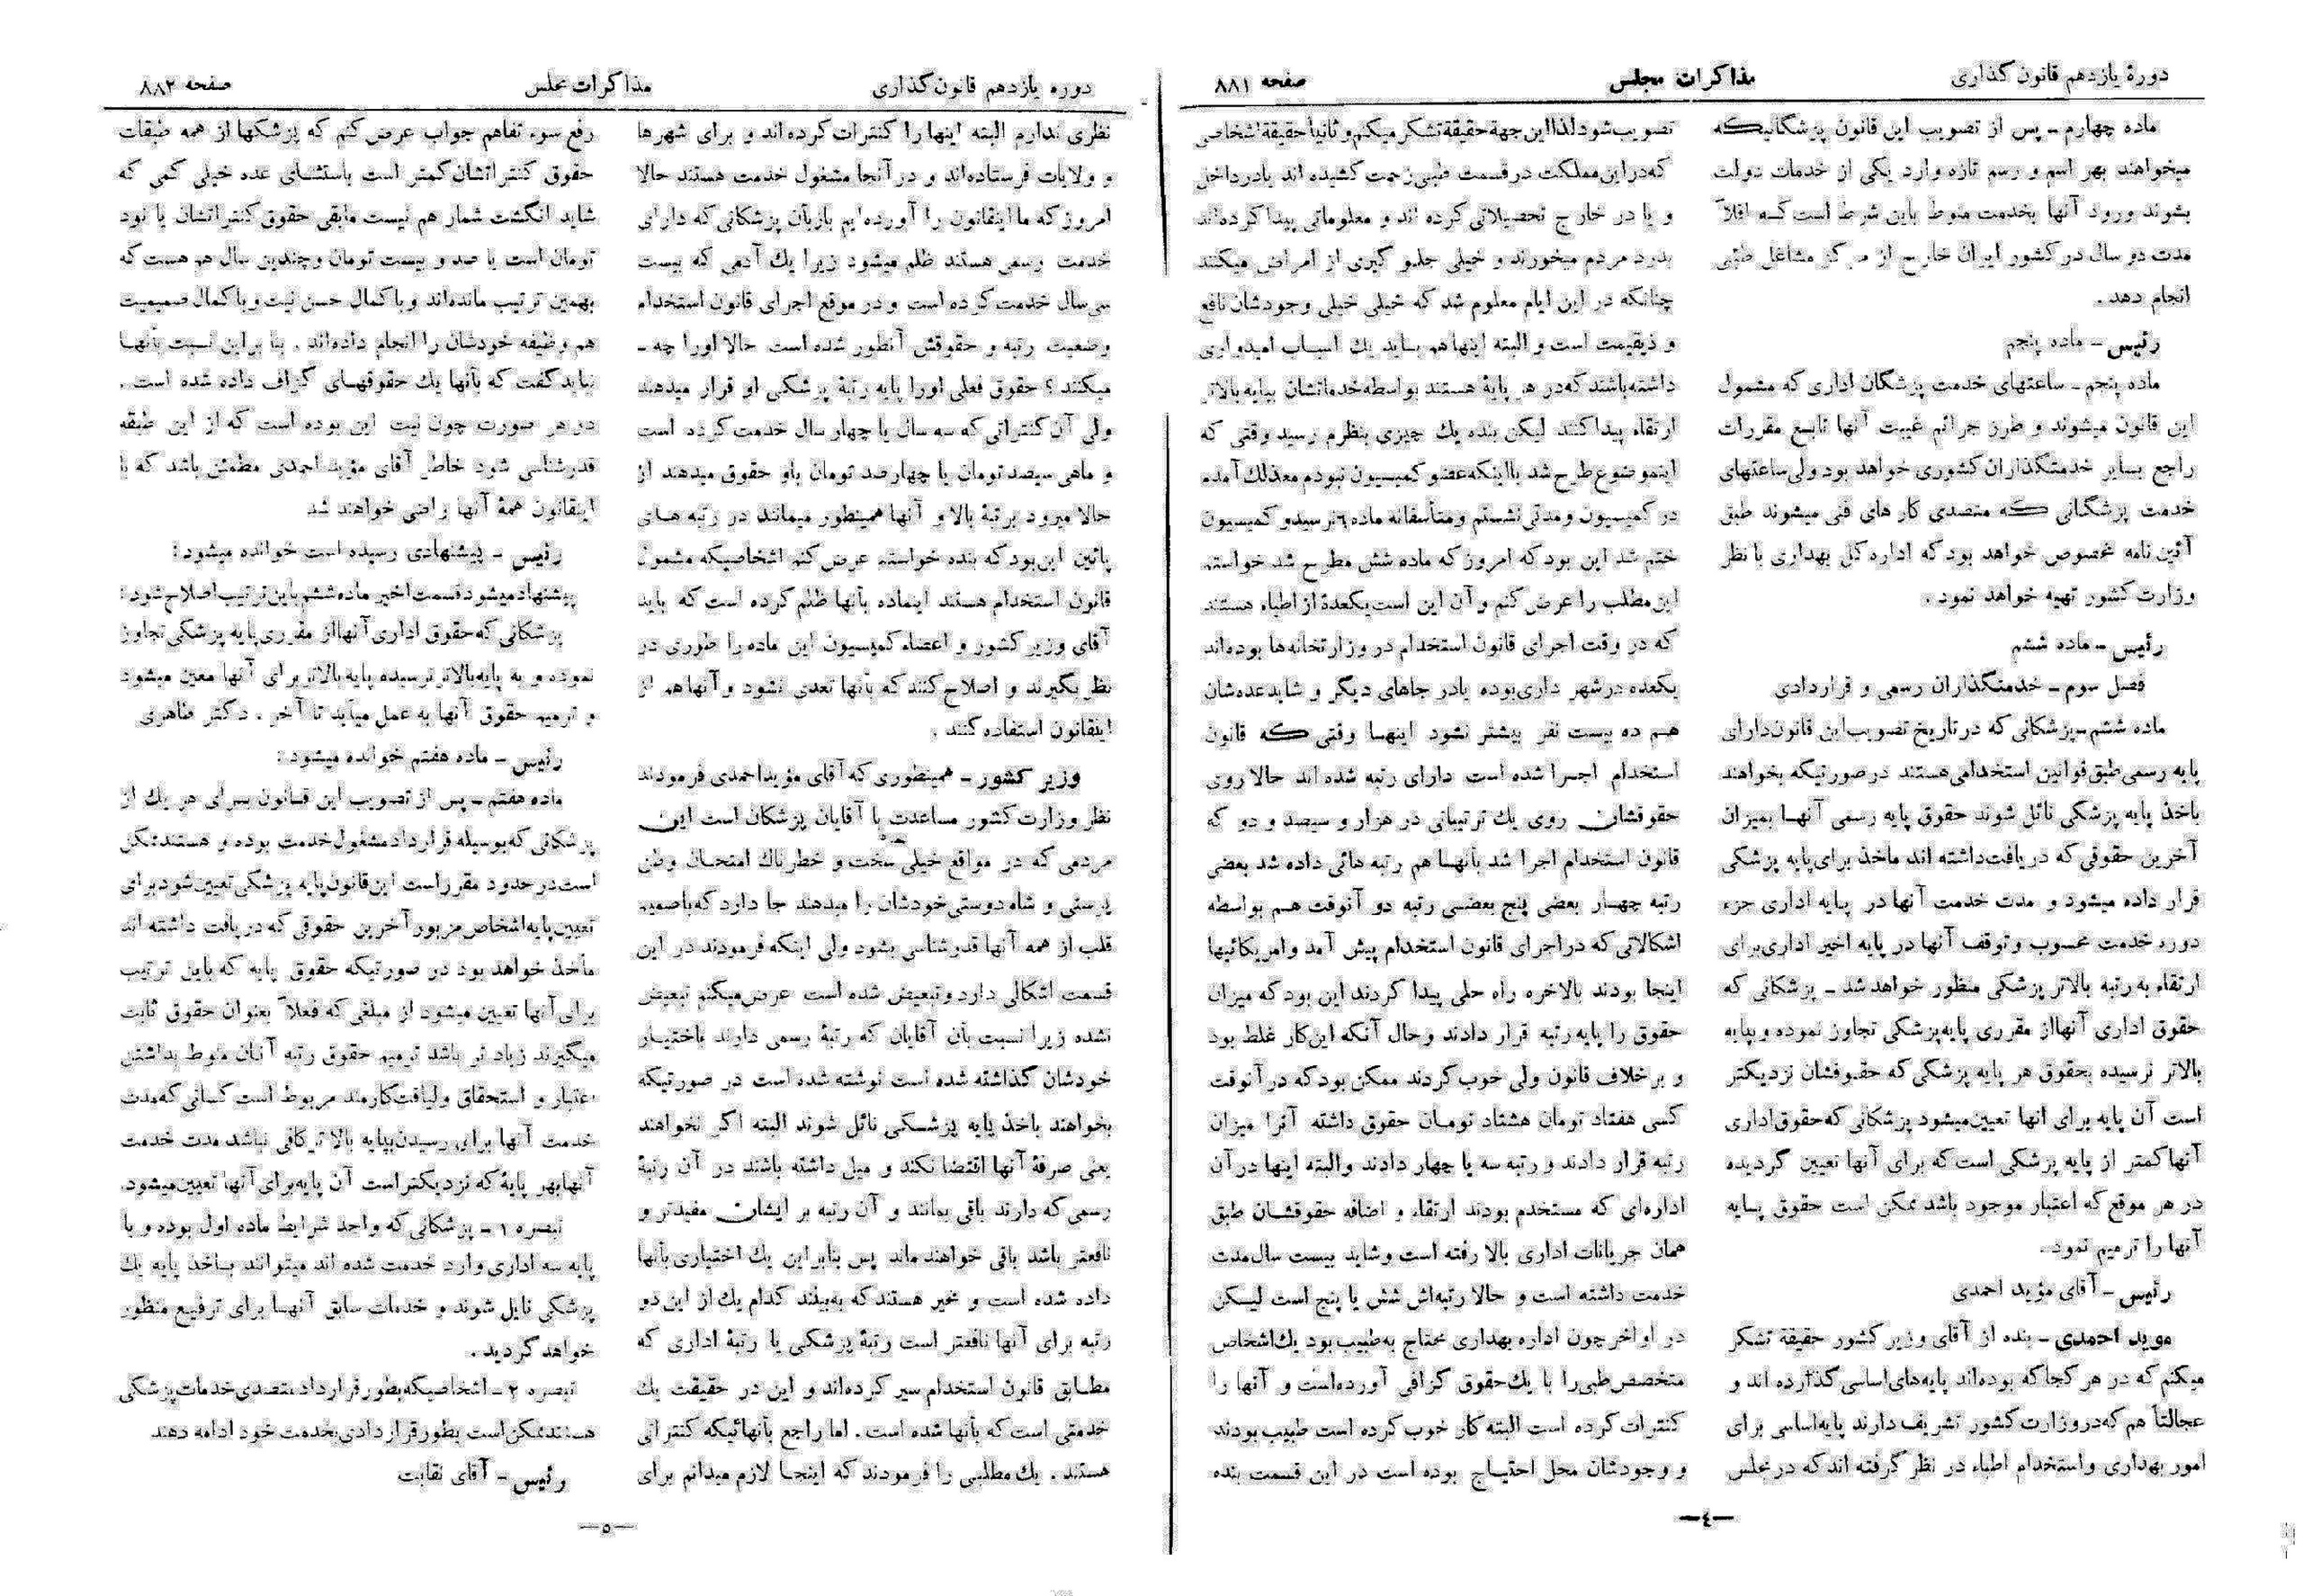 دورهٔ یازدهم قانون گذاری
مذاکرات مجلس
صفحه ۸۸۱
ماده چهارم ـ پس از تصویب این قانون پزشگانیکه
میخواهند بهر اسم و رسم تازه وارد یکی از خدمات دولت
بشوند ورود آنها بخدمت منوط باین شرط است که اقلاً
مدت دو سال در کشور ایران خارج از مرکز مشاغل طبی
انجام دهد .
رئیس ـ ماده پنجم
ماده پنجم ـ ساعتهای خدمت پزشگان اداری که مشمول
این قانون میشوند و طرز جرائم غیبت آنها تابع مقررات
راجع بسایر خدمتگذاران کشوری خواهد بود ولی ساعتهای
خدمت پزشگانی که متصدی کار های فنی میشوند طبق
آئین نامه مخصوص خواهد بود که اداره کل بهداری با نظر
وزارت کشور تهیه خواهد نمود .
رئیس ـ ماده ششم
فصل سوم ـ خدمتگذاران رسمی و قراردادی
ماده ششم ـ پزشکانی که در تاریخ تصویب این قانون دارای
پایه رسمی طبق قوانین استخدامی هستند در صورتیکه بخواهند
باخذ پایه پزشکی نائل شوند حقوق پایه رسمی آنها بمیزان
آخرین حقوقی که دریافت داشته اند ماخذ برای پایه پزشکی
قرار داده میشود و مدت خدمت آنها در پایه اداری جزء
دوره خدمت محسوب و توقف آنها در پایه اخیر اداری برای
ارتقاء به رتبه بالاتر پزشکی منظور خواهد شد ـ پزشکانی که
حقوق اداری آنها از مقرری پایه پزشکی تجاوز نموده و بپایه
بالاتر نرسیده بحقوق هر پایه پزشکی که حقوقشان نزدیکتر
است آن پایه برای انها تعیین میشود پزشکانی که حقوق اداری
آنها کمتر از پایه پزشکی است که برای آنها تعیین گردیده
در هر موقع که اعتبار موجود باشد ممکن است حقوق پایه
آنها را ترمیم نمود.
رئیس ـ آقای مؤید احمدی
موید احمدی ـ بنده از آقای وزیر کشور حقیقة تشکر
میکنم که در هر کجا که بوده‌اند پایه‌های اساسی گذارده اند و
عجالتاً هم که در وزارت کشور تشریف دارند پایه اساسی برای
امور بهداری و استخدام اطباء در نظر گرفته اند که در مجلس
تصویب شود لذا این جهة حقیقة تشکر میکنم و ثانیاً حقیقة اشخاصی
که در این مملکت در قسمت طبی زحمت کشیده اند یا در داخل
و یا در خارج تحصیلاتی کرده اند و معلوماتی پیدا کرده‌اند
بدرد مردم میخورند و خیلی جلو گیری از امراض میکنند
چنانکه در این ایام معلوم شد که خیلی خیلی وجودشان نافع
و ذیقیمت است و البته اینها هم باید یك اسباب امیدواری
داشته باشند که در هر پایهٔ هستند بواسطه خدماتشان بپایه بالاتر
ارتقاء پیدا کنند لیکن بنده یك چیزی بنظرم رسید وقتی که
اینموضوع طرح شد با اینکه عضو کمیسیون نبودم معذلك آمدم
در کمیسیون و مدتی نشستم و متأسفانه ماده ٦ نرسید و کمیسیون
ختم شد این بود که امروز که ماده شش مطرح شد خواستم
این مطلب را عرض کنم و آن این است یکعدهٔ از اطباء هستند
که در وقت اجرای قانون استخدام در وزارتخانه‌ها بوده‌اند
یکعده در شهر داری بوده یا در جاهای دیگر و شاید عده‌شان
هم ده بیست نفر بیشتر نشود اینها وقتی که قانون
استخدام اجرا شده است دارای رتبه شده اند حالا روی
حقوقشان روی یك ترتیباتی در هزار و سیصد و دو که
قانون استخدام اجرا شد بآنها هم رتبه هائی داده شد بعضی
رتبه چهار بعضی پنج بعضی رتبه دو آنوقت هم بواسطه
اشکالاتی که در اجرای قانون استخدام پیش آمد و امریکائیها
اینجا بودند بالاخره راه حلی پیدا کردند این بود که میزان
حقوق را پایه رتبه قرار دادند و حال آنکه این کار غلط بود
و بر خلاف قانون ولی خوب کردند ممکن بود که در آنوقت
کسی هفتاد تومان هشتاد تومان حقوق داشته آنرا میزان
رتبه قرار دادند و رتبه سه یا چهار دادند و البته اینها در آن
اداره‌ای که مستخدم بودند ارتقاء و اضافه حقوقشان طبق
همان جریانات اداری بالا رفته است و شاید بیست سال مدت
خدمت داشته است و حالا رتبه‌اش شش یا پنج است لیکن
در اواخر چون اداره بهداری محتاج به طبیب بود یك اشخاص
متخصص طبی را با یك حقوق گزافی آورده است و آنها را
کنترات کرده است البته کار خوب کرده است طبیب بودند
و وجودشان محل احتیاج بوده است در این قسمت بنده
ـ٤ـ
دوره یازدهم قانون گذاری
مذاکرات مجلس
صفحه ۸۸۲
نظری ندارم البته اینها را کنترات کرده‌اند و برای شهرها
و ولایات فرستاده‌اند و در آنجا مشغول خدمت هستند حالا
امروز که ما اینقانون را آورده ایم بازبآن پزشکانی که دارای
خدمت رسمی هستند ظلم میشود زیرا یك آدمی که بیست
سی سال خدمت کرده است و در موقع اجرای قانون استخدام
وضعیت رتبه و حقوقش آنطور شده است حالا اورا چه ـ
میکنند ؟ حقوق فعلی اورا پایه رتبهٔ پزشکی او قرار میدهند
ولی آن کنتراتی که سه سال یا چهار سال خدمت کرده است
و ماهی سیصد تومان یا چهار صد تومان باو حقوق میدهند از
حالا میرود برتبهٔ بالا و آنها همینطور میمانند در رتبه های
پائین این بود که بنده خواستم عرض کنم اشخاصیکه مشمول
قانون استخدام هستند اینماده بآنها ظلم کرده است که باید
آقای وزیر کشور و اعضاء کمیسیون این ماده را طوری در
نظر بگیرند و اصلاح کنند که بآنها تعدی نشود و آنها هم از
اینقانون استفاده کنند .
وزیر کشور ـ همینطوری که آقای مؤید احمدی فرمودند
نظر وزارت کشور مساعدت با آقایان پزشکان است این
مردمی که در مواقع خیلی سخت و خطرناك امتحان وطن
پرستی و شاه دوستی خودشان را میدهند جا دارد که باصمیم
قلب از همه آنها قدرشناسی بشود ولی اینکه فرمودند در این
قسمت اشکالی دارد و تبعیض شده است عرض میکنم تبعیض
نشده زیرا نسبت بآن آقایان که رتبهٔ رسمی دارند باختیار
خودشان گذاشته شده است نوشته شده است در صورتیکه
بخواهند باخذ پایه پزشکی نائل شوند البته اگر نخواهند
یعنی صرفهٔ آنها اقتضا نکند و میل داشته باشند در آن رتبهٔ
رسمی که دارند باقی بمانند و آن رتبه بر ایشان مفیدتر و
نافعتر باشد باقی خواهند ماند پس بنابراین یك اختیاری بآنها
داده شده است و مخیر هستند که به‌بینند کدام یك از این دو
رتبه برای آنها نافعتر است رتبهٔ پزشکی یا رتبهٔ اداری که
مطابق قانون استخدام سیر کرده‌اند و این در حقیقت یك
خدمتی است که بآنها شده است . اما راجع بآنهائیکه کنتراتی
هستند . یك مطلبی را فرمودند که اینجا لازم میدانم برای
رفع سوء تفاهم جواب عرض کنم که پزشکها از همه طبقات
حقوق کنتراتشان کمتر است باستثنای عده خیلی کمی که
شاید انگشت شمار هم نیست مابقی حقوق کنتراتشان یا نود
تومان است یا صد و بیست تومان و چندین سال هم هست که
بهمین ترتیب مانده‌اند و با کمال حسن نیت و با کمال صمیمیت
هم وظیفه خودشان را انجام داده‌اند . بنا براین نسبت بآنها
نباید گفت که بآنها یك حقوقهای گزاف داده شده است .
در هر صورت چون نیت این بوده است که از این طبقه
قدرشناسی شود خاطر آقای مؤید احمدی مطمئن باشد که با
اینقانون همهٔ آنها راضی خواهند شد
رئیس ـ پیشنهادی رسیده است خوانده میشود :
پیشنهاد میشود قسمت اخیر ماده ششم باین ترتیب اصلاح شود :
پزشکانی که حقوق اداری آنها از مقرری پایه پزشکی تجاوز
نموده و به پایه بالاتر نرسیده پایه بالاتر برای آنها معین میشود
و ترمیم حقوق آنها به عمل میآید تا آخر . دکتر طاهری
رئیس ـ ماده هفتم خوانده میشود :
ماده هفتم ـ پس از تصویب این قانون برای هر یك از
پزشکانی که بوسیله قرارداد مشغول خدمت بوده و هستند ممکن
است در حدود مقررات این قانون پایه پزشکی تعیین شود برای
تعیین پایه اشخاص مزبور آخرین حقوقی که دریافت داشته اند
مأخذ خواهد بود در صورتیکه حقوق پایه که باین ترتیب
برای آنها تعیین میشود از مبلغی که فعلاً بعنوان حقوق ثابت
میگیرند زیاد تر باشد ترمیم حقوق رتبه آنان منوط بداشتن
اعتبار و استحقاق و لیاقت کارمند مربوط است کسانی که مدت
خدمت آنها برای رسیدن بپایه بالاتر کافی نباشد مدت خدمت
آنها بهر پایهٔ که نزدیکتر است آن پایه برای آنها تعیین میشود.
تبصره ۱ ـ پزشکانی که واجد شرایط ماده اول بوده و با
پایه سه اداری وارد خدمت شده اند میتوانند باخذ پایه یك
پزشکی نایل شوند و خدمات سابق آنها برای ترفیع منظور
خواهد گردید .
تبصره ۲ ـ اشخاصیکه بطور قرارداد متصدی خدمات پزشکی
هستند ممکن است بطور قراردادی بخدمت خود ادامه دهند
رئیس ـ آقای نقابت
ـ٥ـ